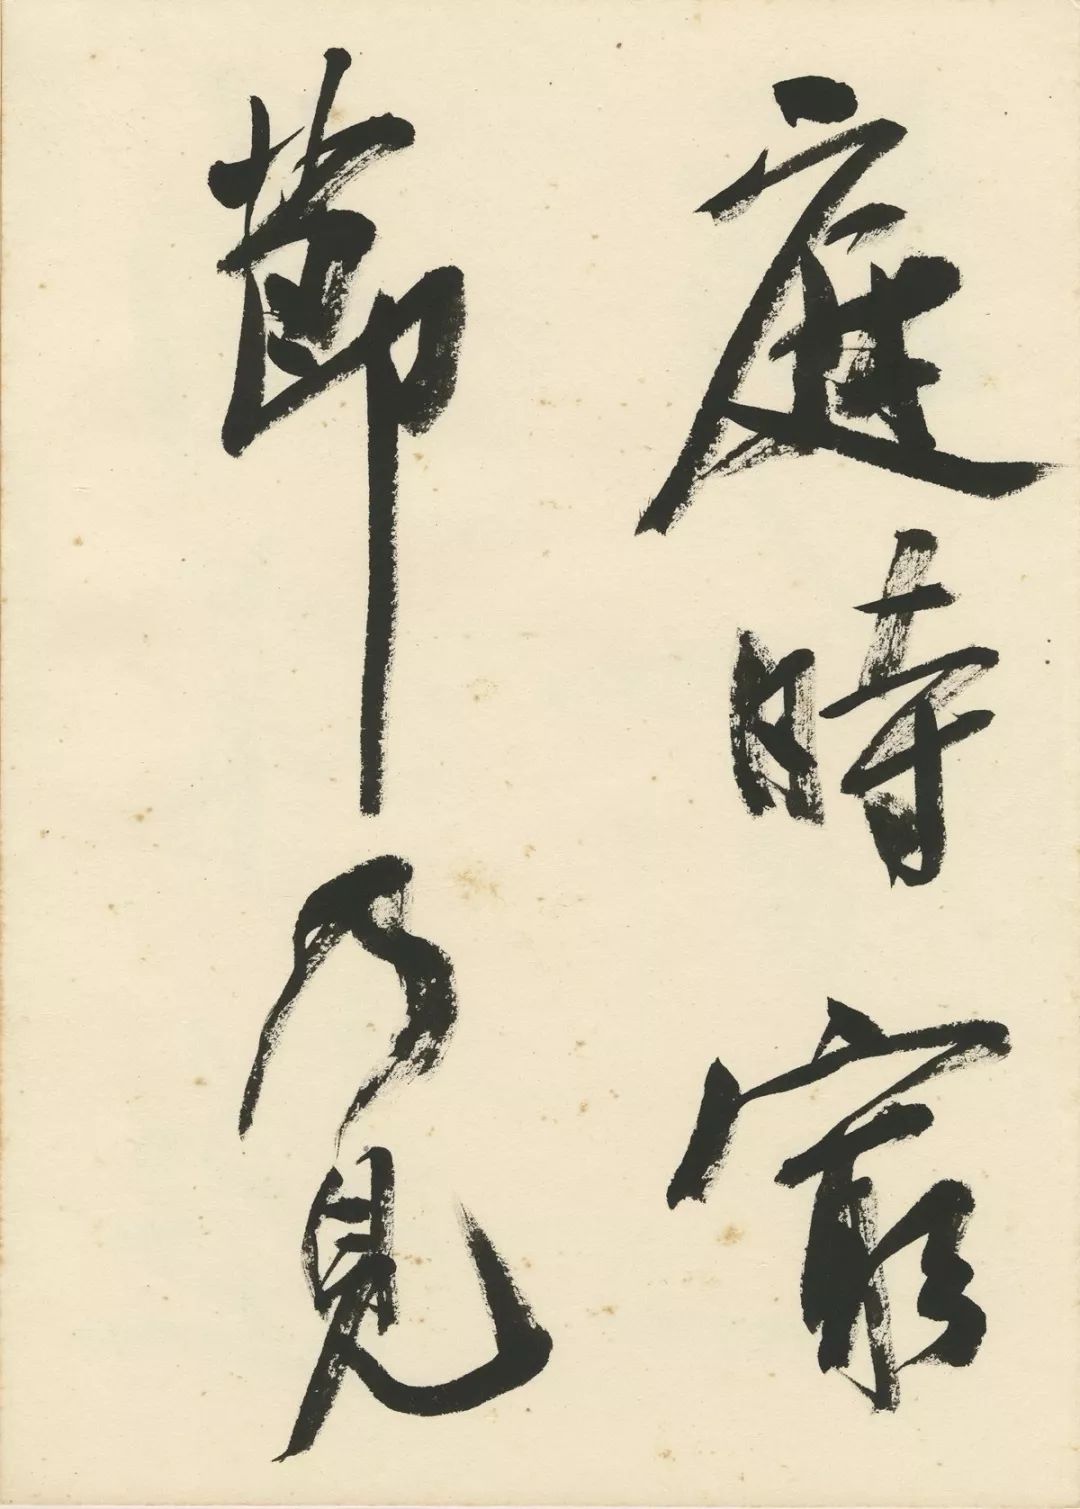 庭時窮
節乃見